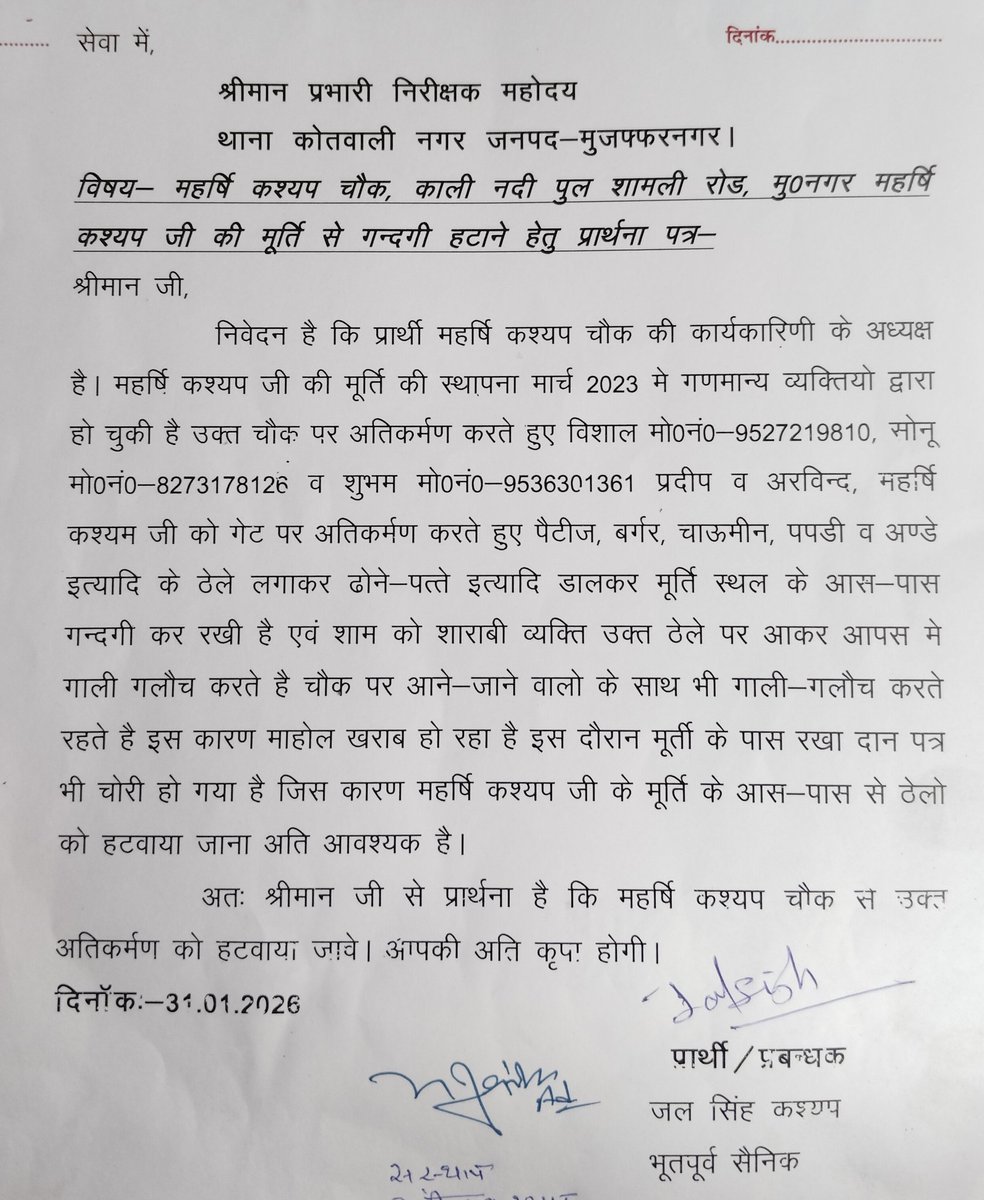 सेवा में,
दिनांक
श्रीमान प्रभारी निरीक्षक महोदय
थाना कोतवाली नगर जनपद–मुजफ्फरनगर।
विषय– महर्षि कश्यप चौक, काली नदी पुल शामली रोड, मु0नगर महर्षि
कश्यप जी की मूर्ति से गन्दगी हटाने हेतु प्रार्थना पत्र–
श्रीमान जी,
निवेदन है कि प्रार्थी महर्षि कश्यप चौक की कार्यकारिणी के अध्यक्ष
है। महर्षि कश्यप जी की मूर्ति की स्थापना मार्च 2023 मे गणमान्य व्यक्तियो द्वारा
हो चुकी है उक्त चौक पर अतिकर्मण करते हुए विशाल मो0नं0–9527219810, सोनू
मो0नं0–8273178126 व शुभम मो0नं0–9536301361 प्रदीप व अरविन्द, महर्षि
कश्यम जी को गेट पर अतिकर्मण करते हुए पैटीज, बर्गर, चाऊमीन, पपडी व अण्डे
इत्यादि के ठेले लगाकर ढोने–पत्ते इत्यादि डालकर मूर्ति स्थल के आस–पास
गन्दगी कर रखी है एवं शाम को शाराबी व्यक्ति उक्त ठेले पर आकर आपस मे
गाली गलौच करते है चौक पर आने–जाने वालो के साथ भी गाली–गलौच करते
रहते है इस कारण माहोल खराब हो रहा है इस दौरान मूर्ती के पास रखा दान पत्र
भी चोरी हो गया है जिस कारण महर्षि कश्यप जी के मूर्ति के आस–पास से ठेलो
को हटवाया जाना अति आवश्यक है।
अतः श्रीमान जी से प्रार्थना है कि महर्षि कश्यप चौक से उक्त
अतिकर्मण को हटवाया जावे। आपकी अति कृपा होगी।
दिनॉकः–31.01.2026
प्रार्थी / प्रबन्धक
जल सिंह कश्यप
भूतपूर्व सैनिक